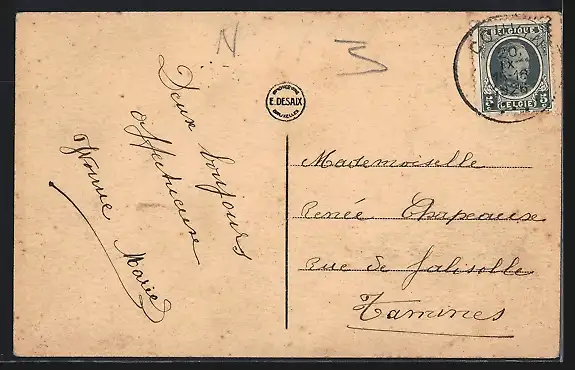 N
Deux bonjours
affectueux
Yvonne Marie
E. DESAIX
BRUXELLES
BELGIQUE
BELGIE
5c 5c
Mademoiselle
Renée Chapeaux
Rue de Falisolle
Tamines